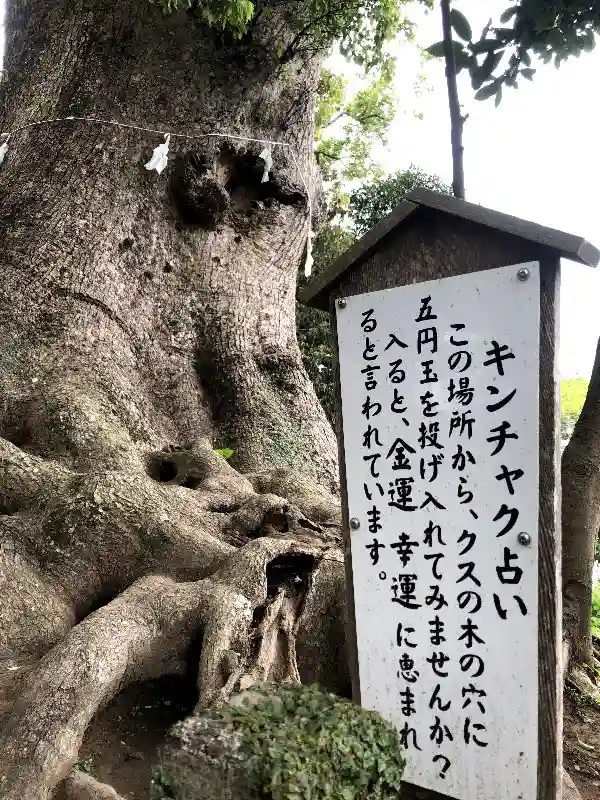 キンチャク占い
この場所から、クスの木の穴に
五円玉を投げ入れてみませんか？
入ると、金運 幸運に恵まれ
ると言われています。